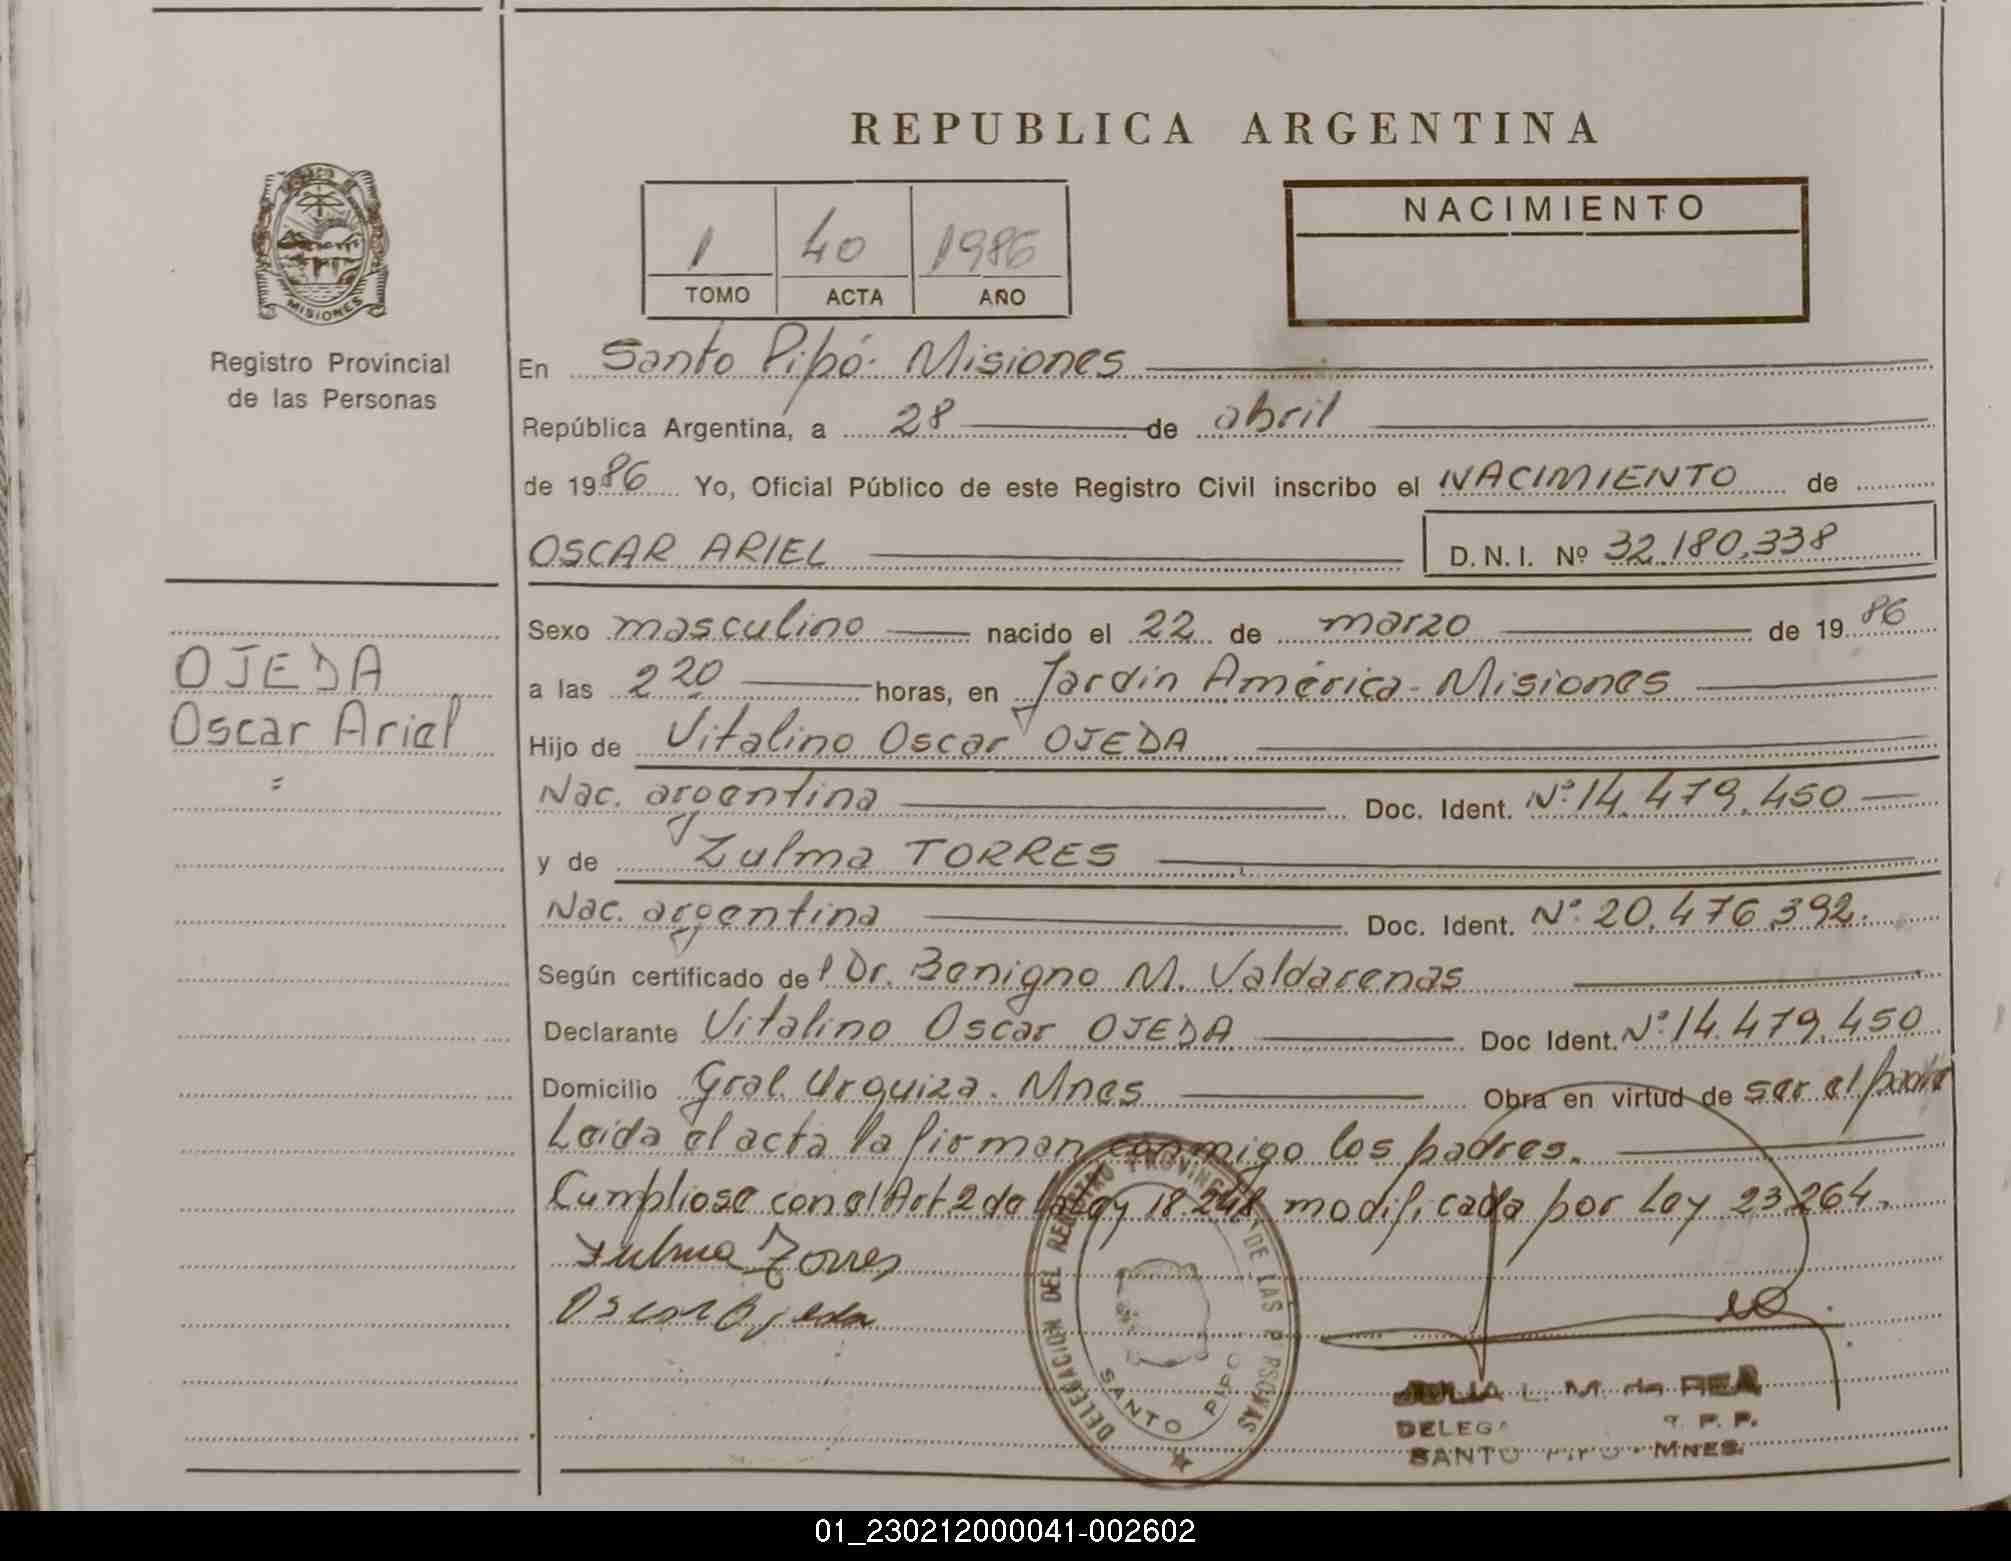 REPUBLICA ARGENTINA
MISIONES
Registro Provincial
de las Personas
1 40 1986
TOMO ACTA AÑO
NACIMIENTO
En Santo Pipó - Misiones
República Argentina, a 28 de abril
de 1986 Yo, Oficial Público de este Registro Civil inscribo el NACIMIENTO de
OSCAR ARIEL D.N.I. Nº 32.180.338
Sexo masculino nacido el 22 de marzo de 1986
OJEDA
a las 2 20 horas, en Jardín América - Misiones
Oscar Ariel
Hijo de Vitalino Oscar OJEDA
=
Nac. argentina Doc. Ident. Nº 14.479.450
y de Zulma TORRES
Nac. argentina Doc. Ident. Nº 20.476.392.
Según certificado del Dr. Benigno M. Valdarenas
Declarante Vitalino Oscar OJEDA Doc Ident. Nº 14.479.450
Domicilio Gral. Urquiza. Mnes Obra en virtud de ser el padre
Leída el acta la firman conmigo los padres.
Cumpliose con el Art 2 de la Ley 18.248 modificada por Ley 23264.
Zulma Torres
Oscar Ojeda
DELEGACION DEL REGISTRO PROVINCIAL DE LAS PERSONAS
SANTO PIPO
JULIA L. M. de REA
R. P. P.
SANTO PIPO - MNES.
01_230212000041-002602